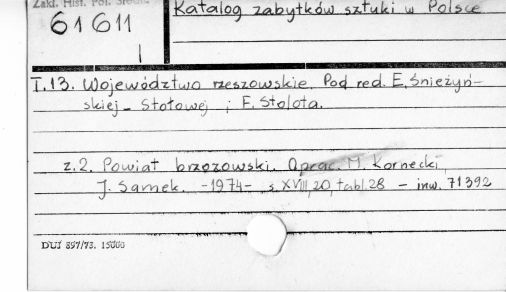 Zakł. Hist. Pol. Średn.
Katalog zabytków sztuki w Polsce
61611
T.13. Województwo rzeszowskie. Pod red. E. Śnieżyń-
skiej-Stołowej i F. Stolota.
z.2. Powiat brzozowski. Oprac. M. Kornecki,
J. Samek. -1974- s. XVIII, 20, tabl. 28 - inw. 71392
DUJ 897/73. 15000